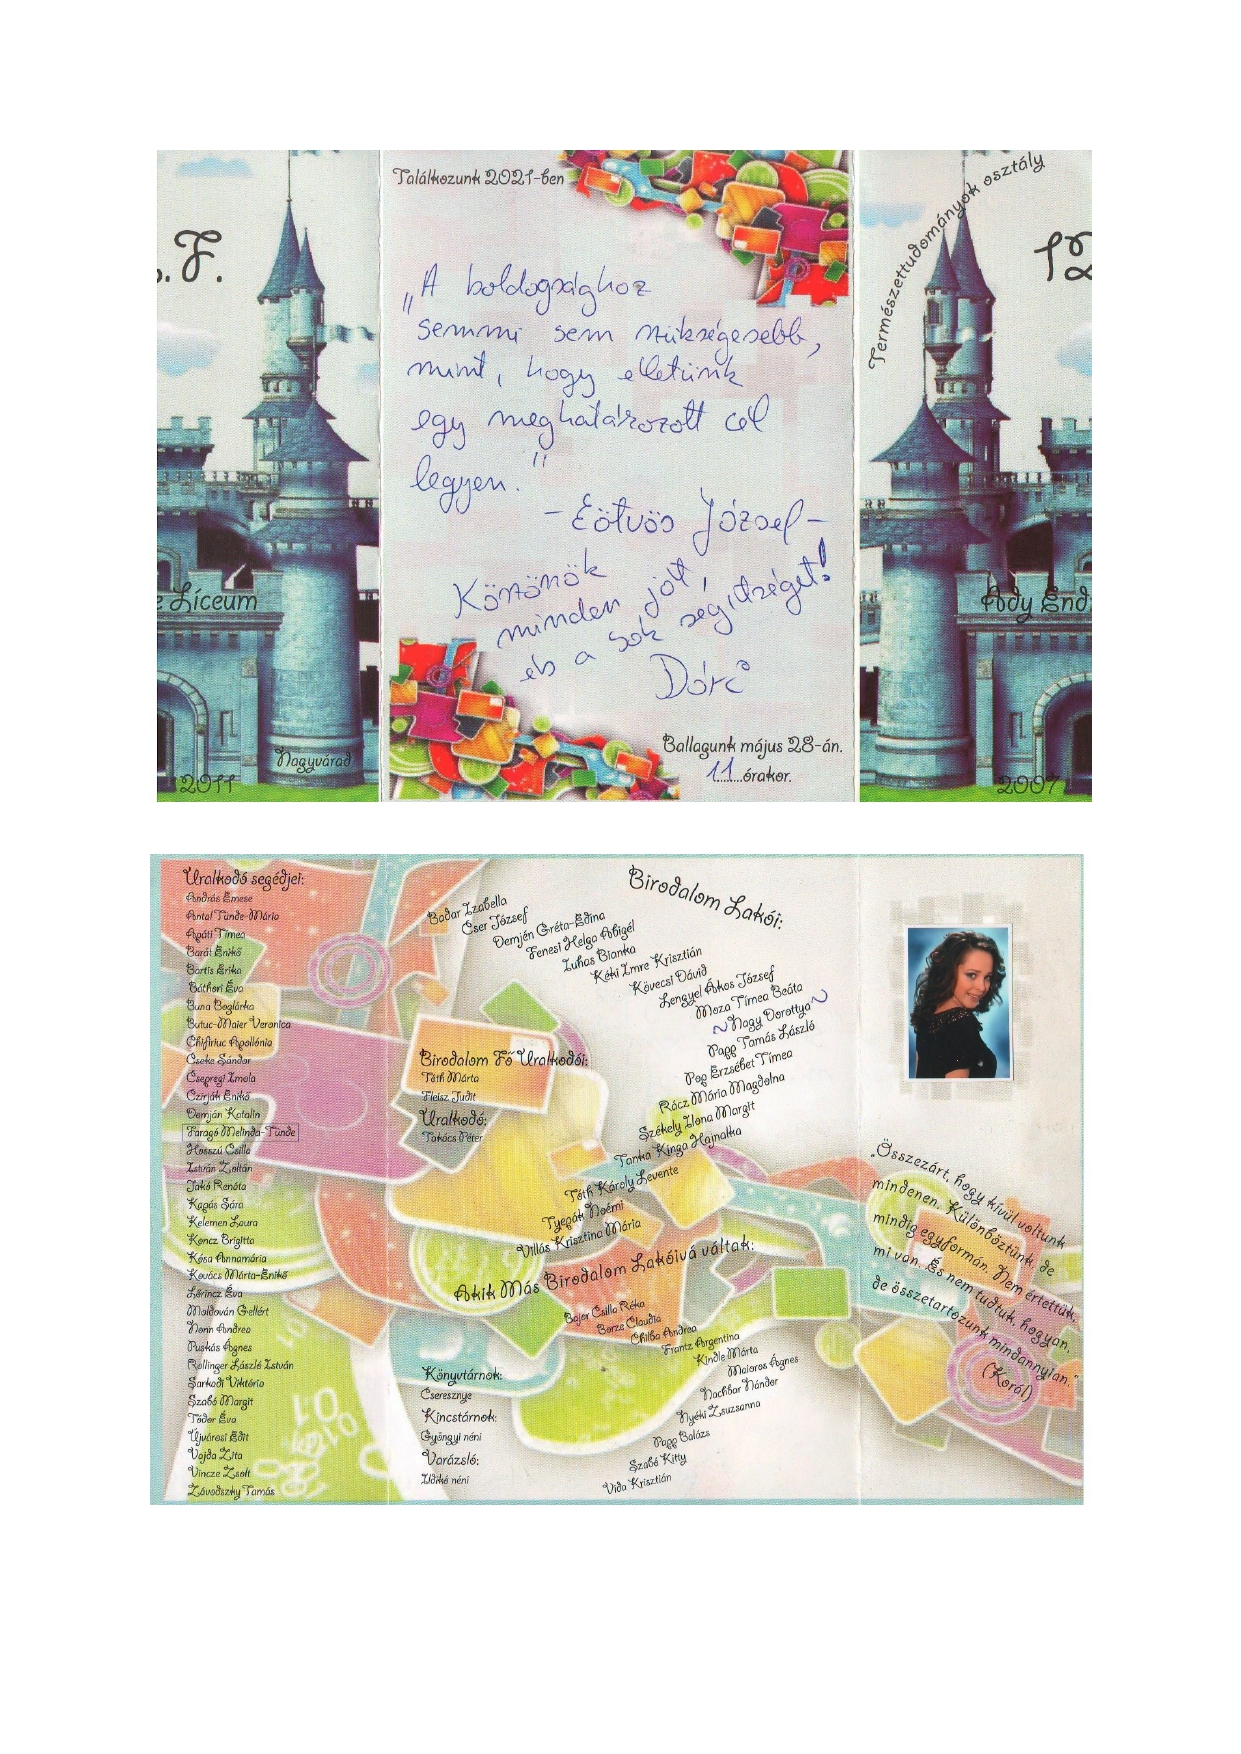 .F.
e Líceum
Nagyvárad
2011
Találkozunk 2021-ben
„A boldogsághoz
semmi sem szükségesebb,
mint, hogy életünk
egy meghatározott cél
legyen."
- Eötvös József -
Köszönök
minden jót,
és a sok segítséget!
Dóri
Ballagunk május 28-án.
11 órakor.
Természettudományok osztály
12
Ady End
2007
Uralkodó segédjei:
András Emese
Antal Tünde-Mária
Apáti Tímea
Barát Enikő
Bartis Erika
Báthori Éva
Buna Boglárka
Butuc-Maier Veronica
Chifiriuc Apollónia
Cseke Sándor
Csepregi Imola
Czirják Enikő
Demján Katalin
Faragó Melinda-Tünde
Hosszú Csilla
István Zoltán
Jakó Renáta
Kapás Sára
Kelemen Laura
Koncz Brigitta
Kósa Annamária
Kovács Márta-Enikő
Lőrincz Éva
Moldován Gellért
Nonn Andrea
Puskás Ágnes
Rollinger László István
Sarkadi Viktória
Szabó Margit
Tódor Éva
Újvárosi Edit
Vajda Zita
Vincze Zsolt
Závodszky Tamás
Birodalom Fő Uralkodói:
Tóth Márta
Fleisz Judit
Uralkodó:
Takács Péter
Könyvtárnok:
Cseresznye
Kincstárnok:
Gyöngyi néni
Varázsló:
Ildikó néni
Birodalom Lakói:
Bodar Izabella
Cser József
Demjén Gréta-Edina
Fenesi Helga Abigél
Juhos Bianka
Kéki Imre Krisztián
Kövecsi Dávid
Lengyel Ákos József
Moza Tímea Beáta
~Nagy Dorottya~
Papp Tamás László
Pop Erzsébet Tímea
Rácz Mária Magdolna
Székely Ilona Margit
Tanka Kinga Hajnalka
Tóth Károly Levente
Tyepák Noémi
Villás Krisztina Mária
Akik Más Birodalom Lakóivá váltak:
Bajor Csilla Réka
Borze Claudia
Chilba Andrea
Frantz Argentina
Kindle Márta
Maioros Ágnes
Nachbar Nándor
Nyéki Zsuzsanna
Papp Balázs
Szabó Kitty
Vida Krisztián
„Összezárt, hogy kívül voltunk
mindenen. Különböztünk, de
mindig egyformán. Nem értettük,
mi van. És nem tudtuk, hogyan,
de összetartozunk mindannyian."
(Korál)